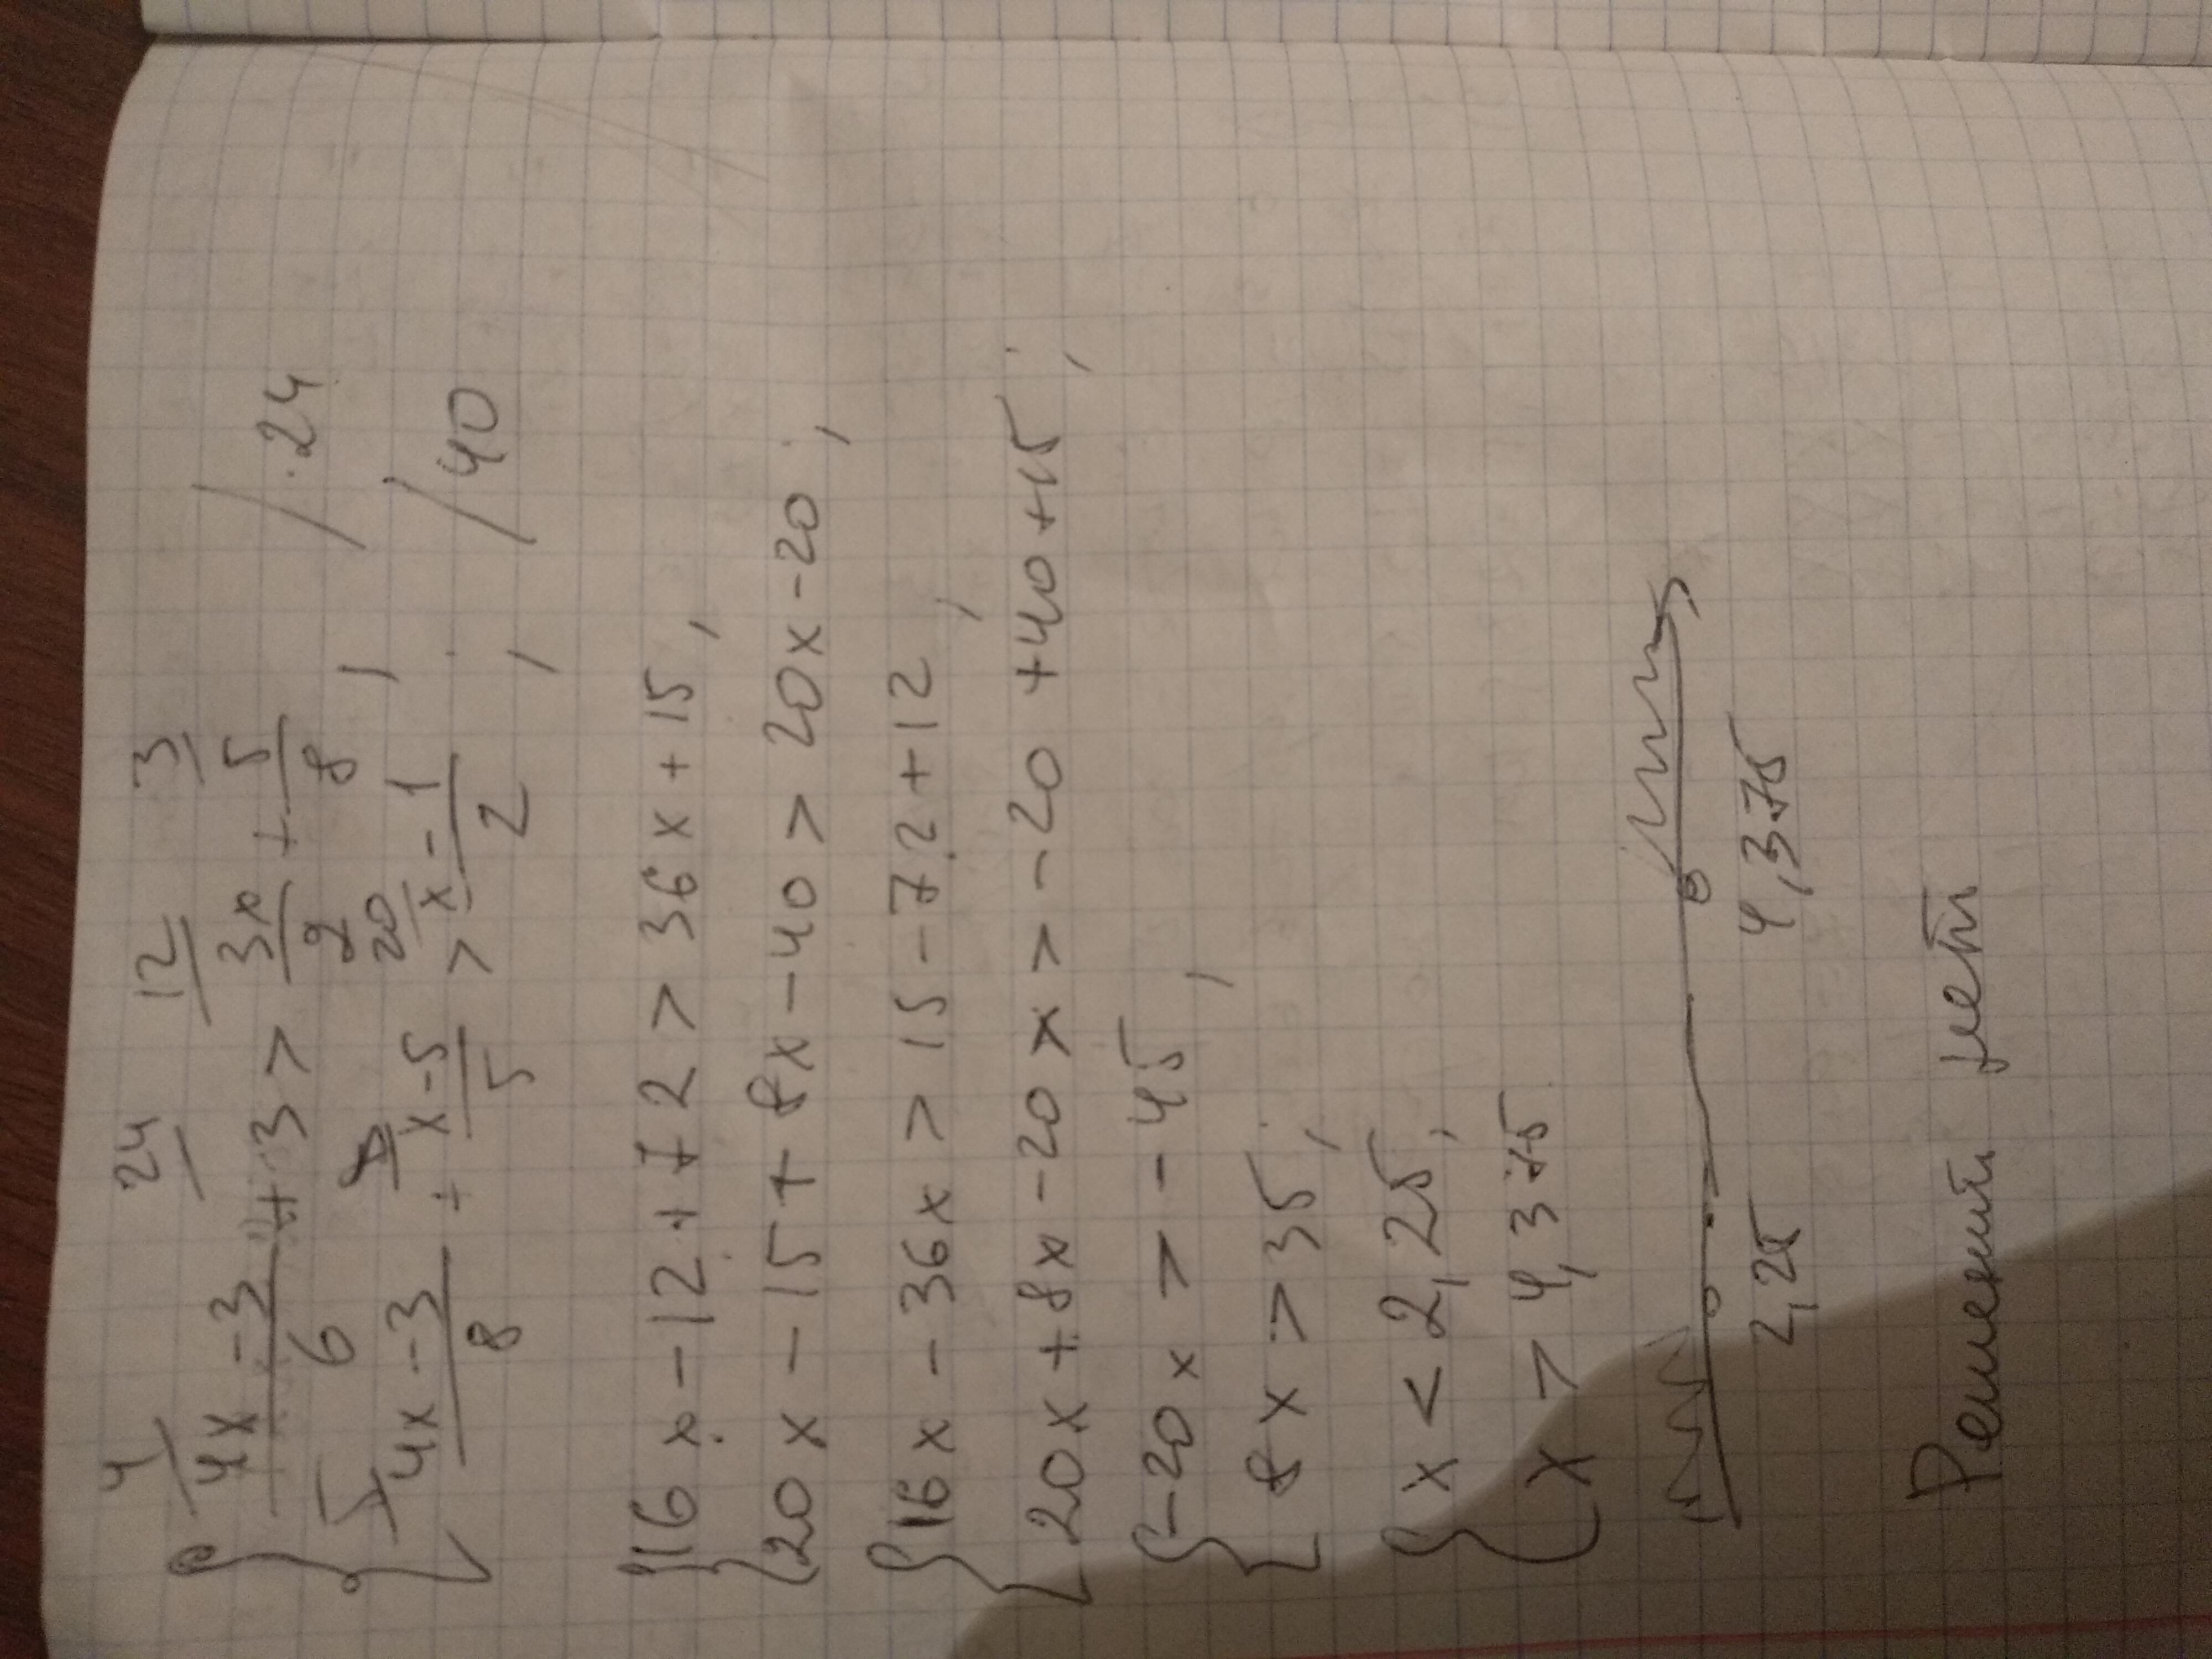 4 24 12 3
{ 4x-3/6 + 3 > 3x/2 + 5/8, /·24
5 8 20
4x-3/8 + x-5/5 > x-1/2; /40
{ 16x-12+72 > 36x+15,
20x-15+8x-40 > 20x-20;
{ 16x-36x > 15-72+12,
20x+8x-20x > -20+40+15;
{ -20x > -45,
8x > 35;
{ x < 2,25;
x > 4,375
2,25 4,375
Решений нет